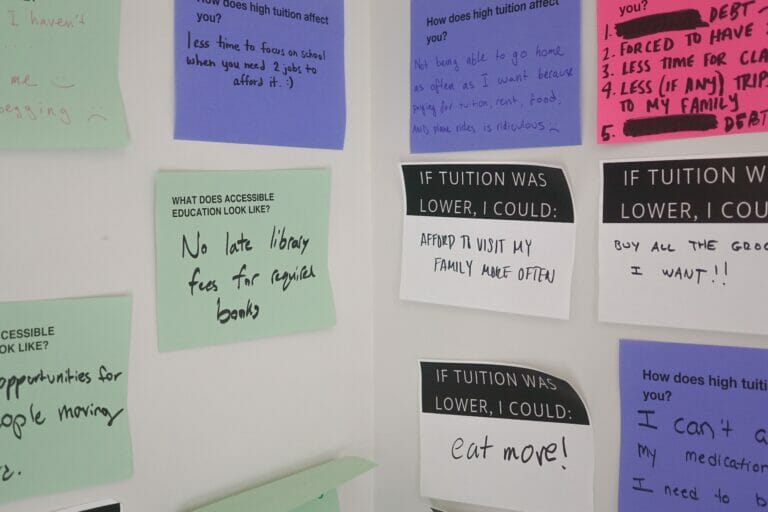 I haven't
me
begging
How does high tuition affect
you?
less time to focus on school
when you need 2 jobs to
afford it. :)
How does high tuition affect
you?
Not being able to go home
as often as I want because
paying for tuition, rent, food,
plane rides is ridiculous
you?
1. DEBT
2. FORCED TO HAVE
3. LESS TIME FOR
4. LESS (IF ANY) TRIPS
TO MY FAMILY
5. DEBT
WHAT DOES ACCESSIBLE
EDUCATION LOOK LIKE?
No late library
fees for required
books
IF TUITION WAS
LOWER, I COULD:
AFFORD TO VISIT MY
FAMILY MORE OFTEN
IF TUITION
LOWER, I
BUY ALL THE
I WANT!!
LIKE?
opportunities for
moving
IF TUITION WAS
LOWER, I COULD:
eat more!
How does high
you?
I can't
my
I need to